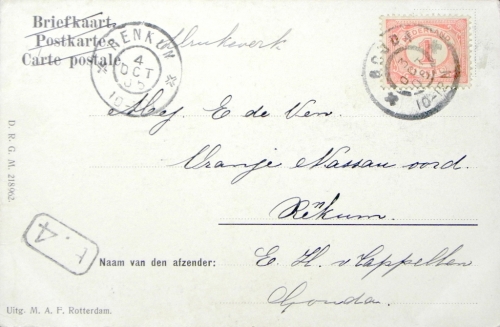 Briefkaart.
Postkarte.
Carte postale.
Drukwerk
RENKUM
4
OCT
05
10
GOUDA
NEDERLAND
1
10-12 N
Mej. E de Ven.
Oranje Nassau oord.
Renkum.
D. R. G. M. 218962.
F.4
Naam van den afzender:
E. H. v Cappellen
Gouda.
Uitg. M. A. F. Rotterdam.